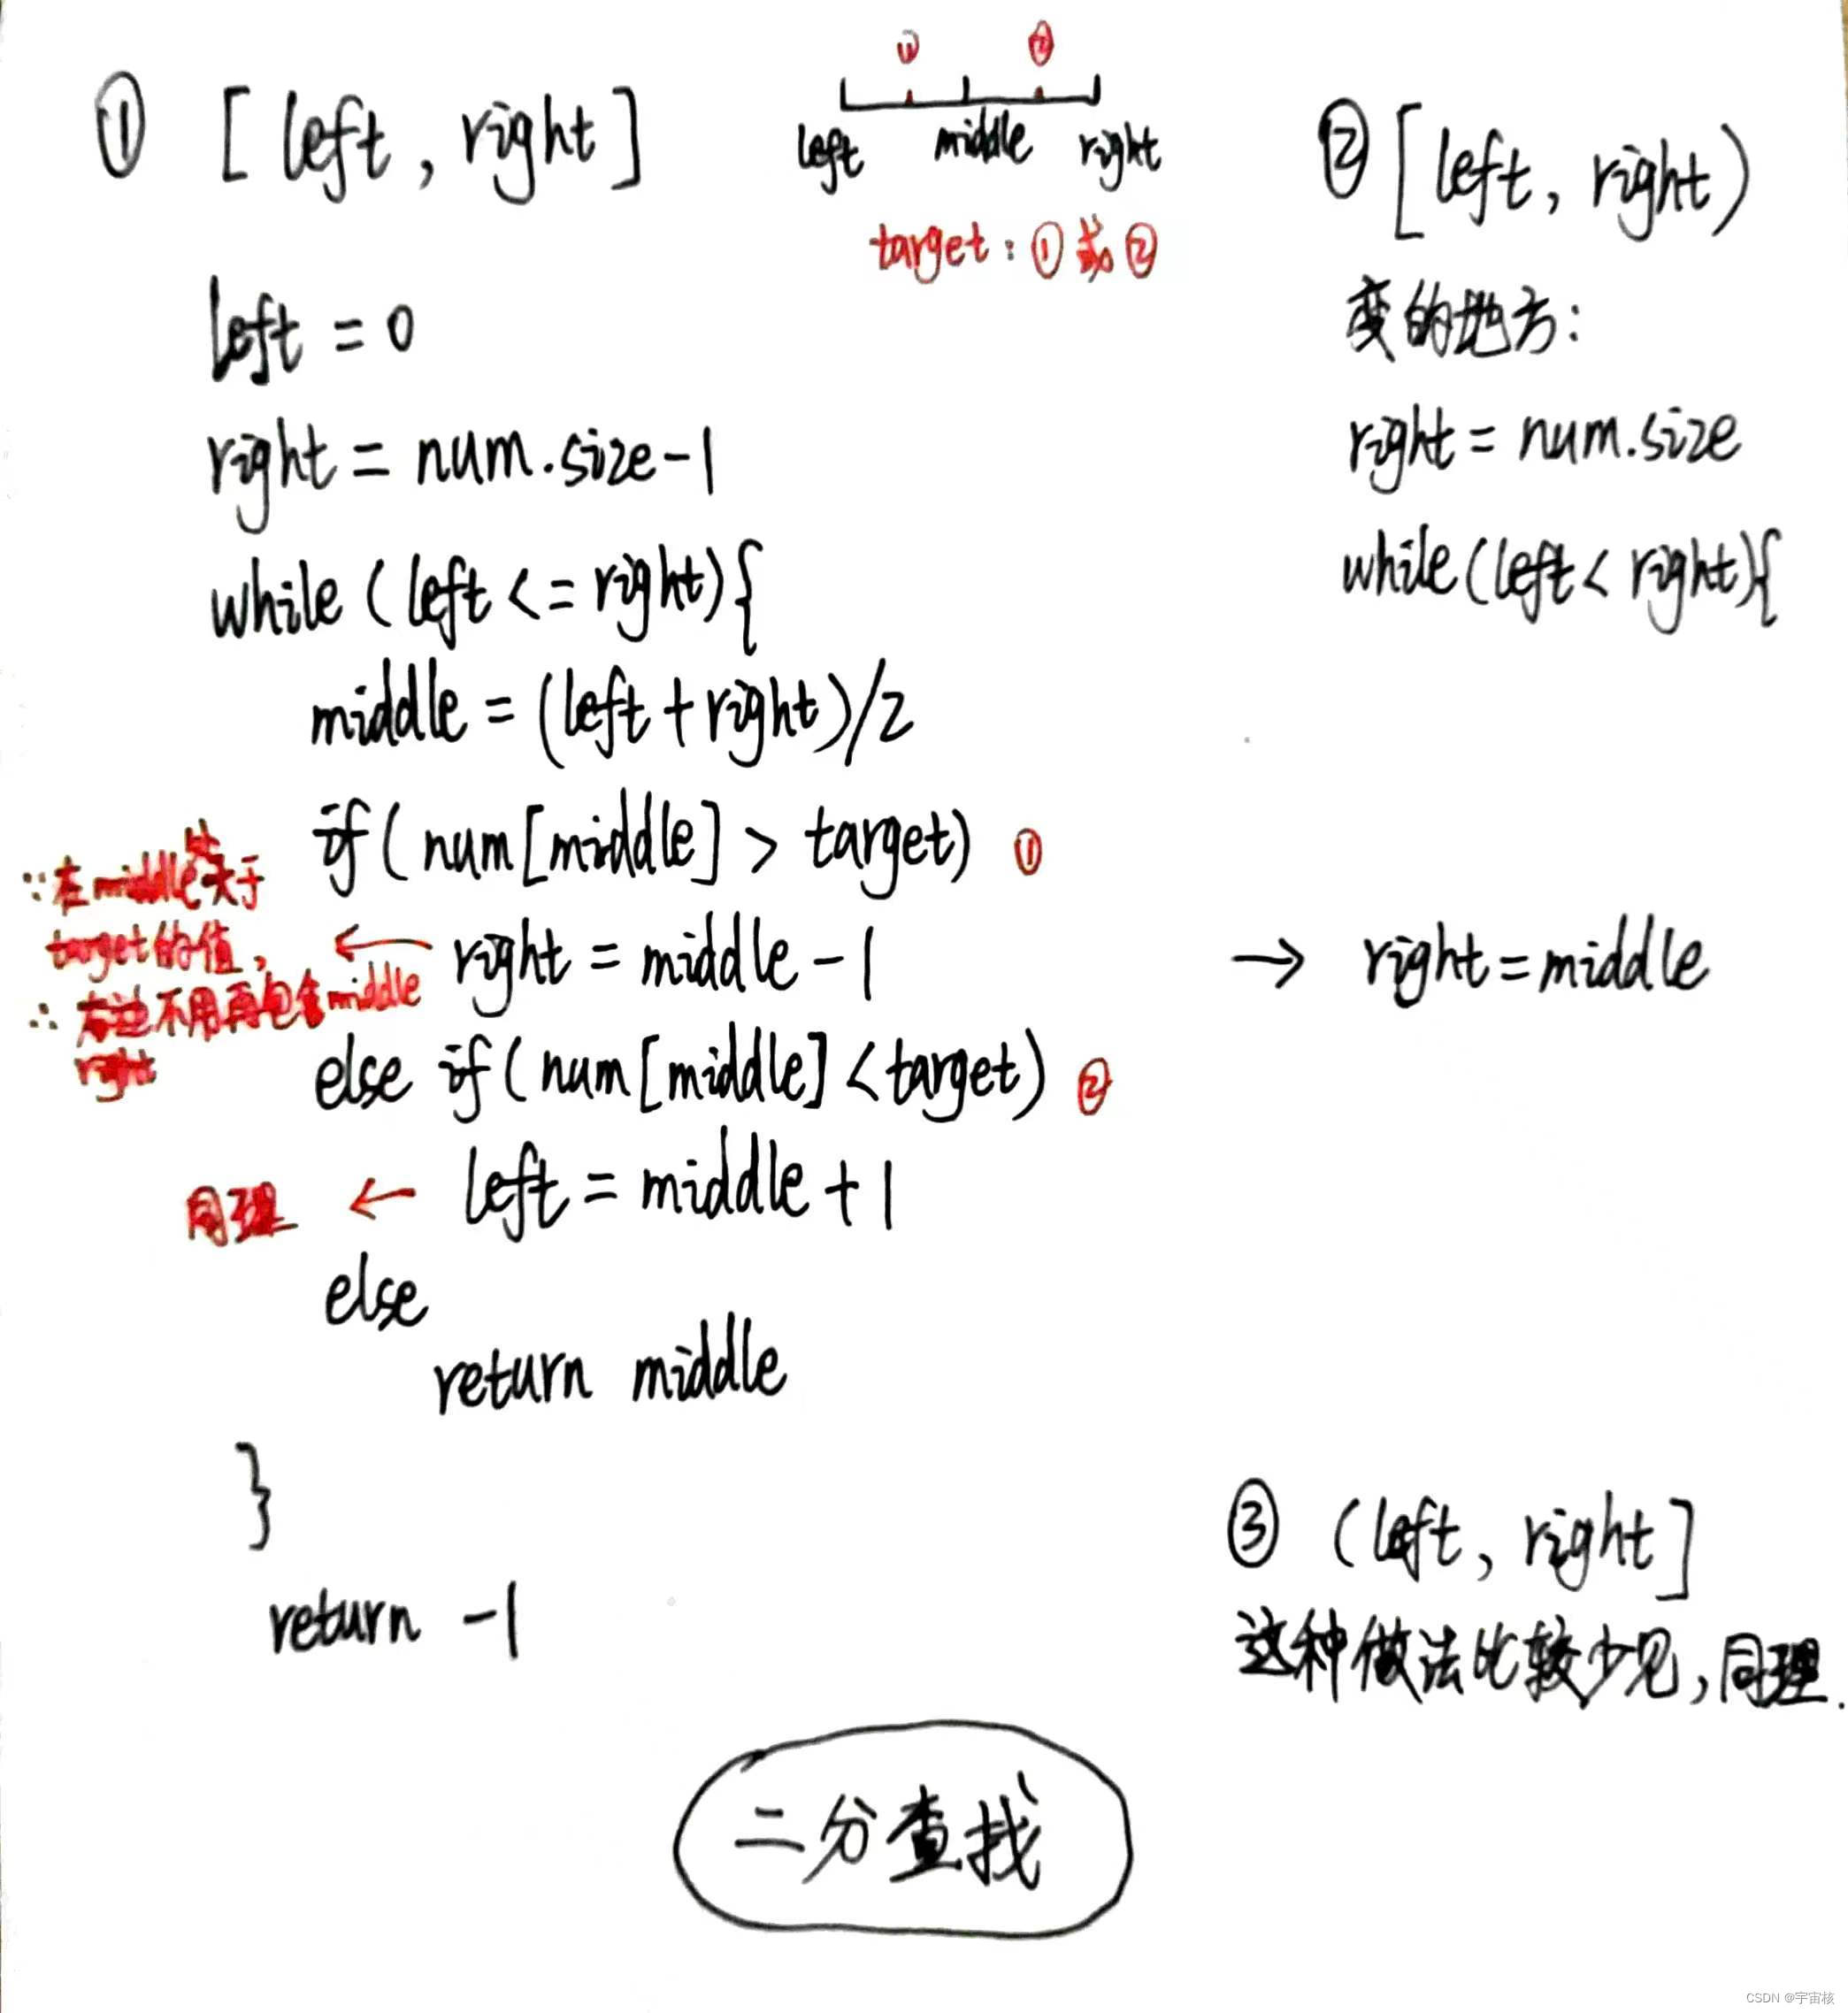 ① [left, right]
① ②
left middle right
target: ① 或 ②
left = 0
right = num.size-1
while (left <= right){
middle = (left + right)/2
if(num[middle] > target) ①
∵在middle处大于
target的值,
← right = middle - 1
∴ 右边不用再包含middle
right
else if(num[middle] < target) ②
同理 ← left = middle + 1
else
return middle
}
return -1
② [left, right)
变的地方:
right = num.size
while(left < right){
→ right = middle
③ (left, right]
这种做法比较少见,同理.
二分查找
CSDN @宇宙核